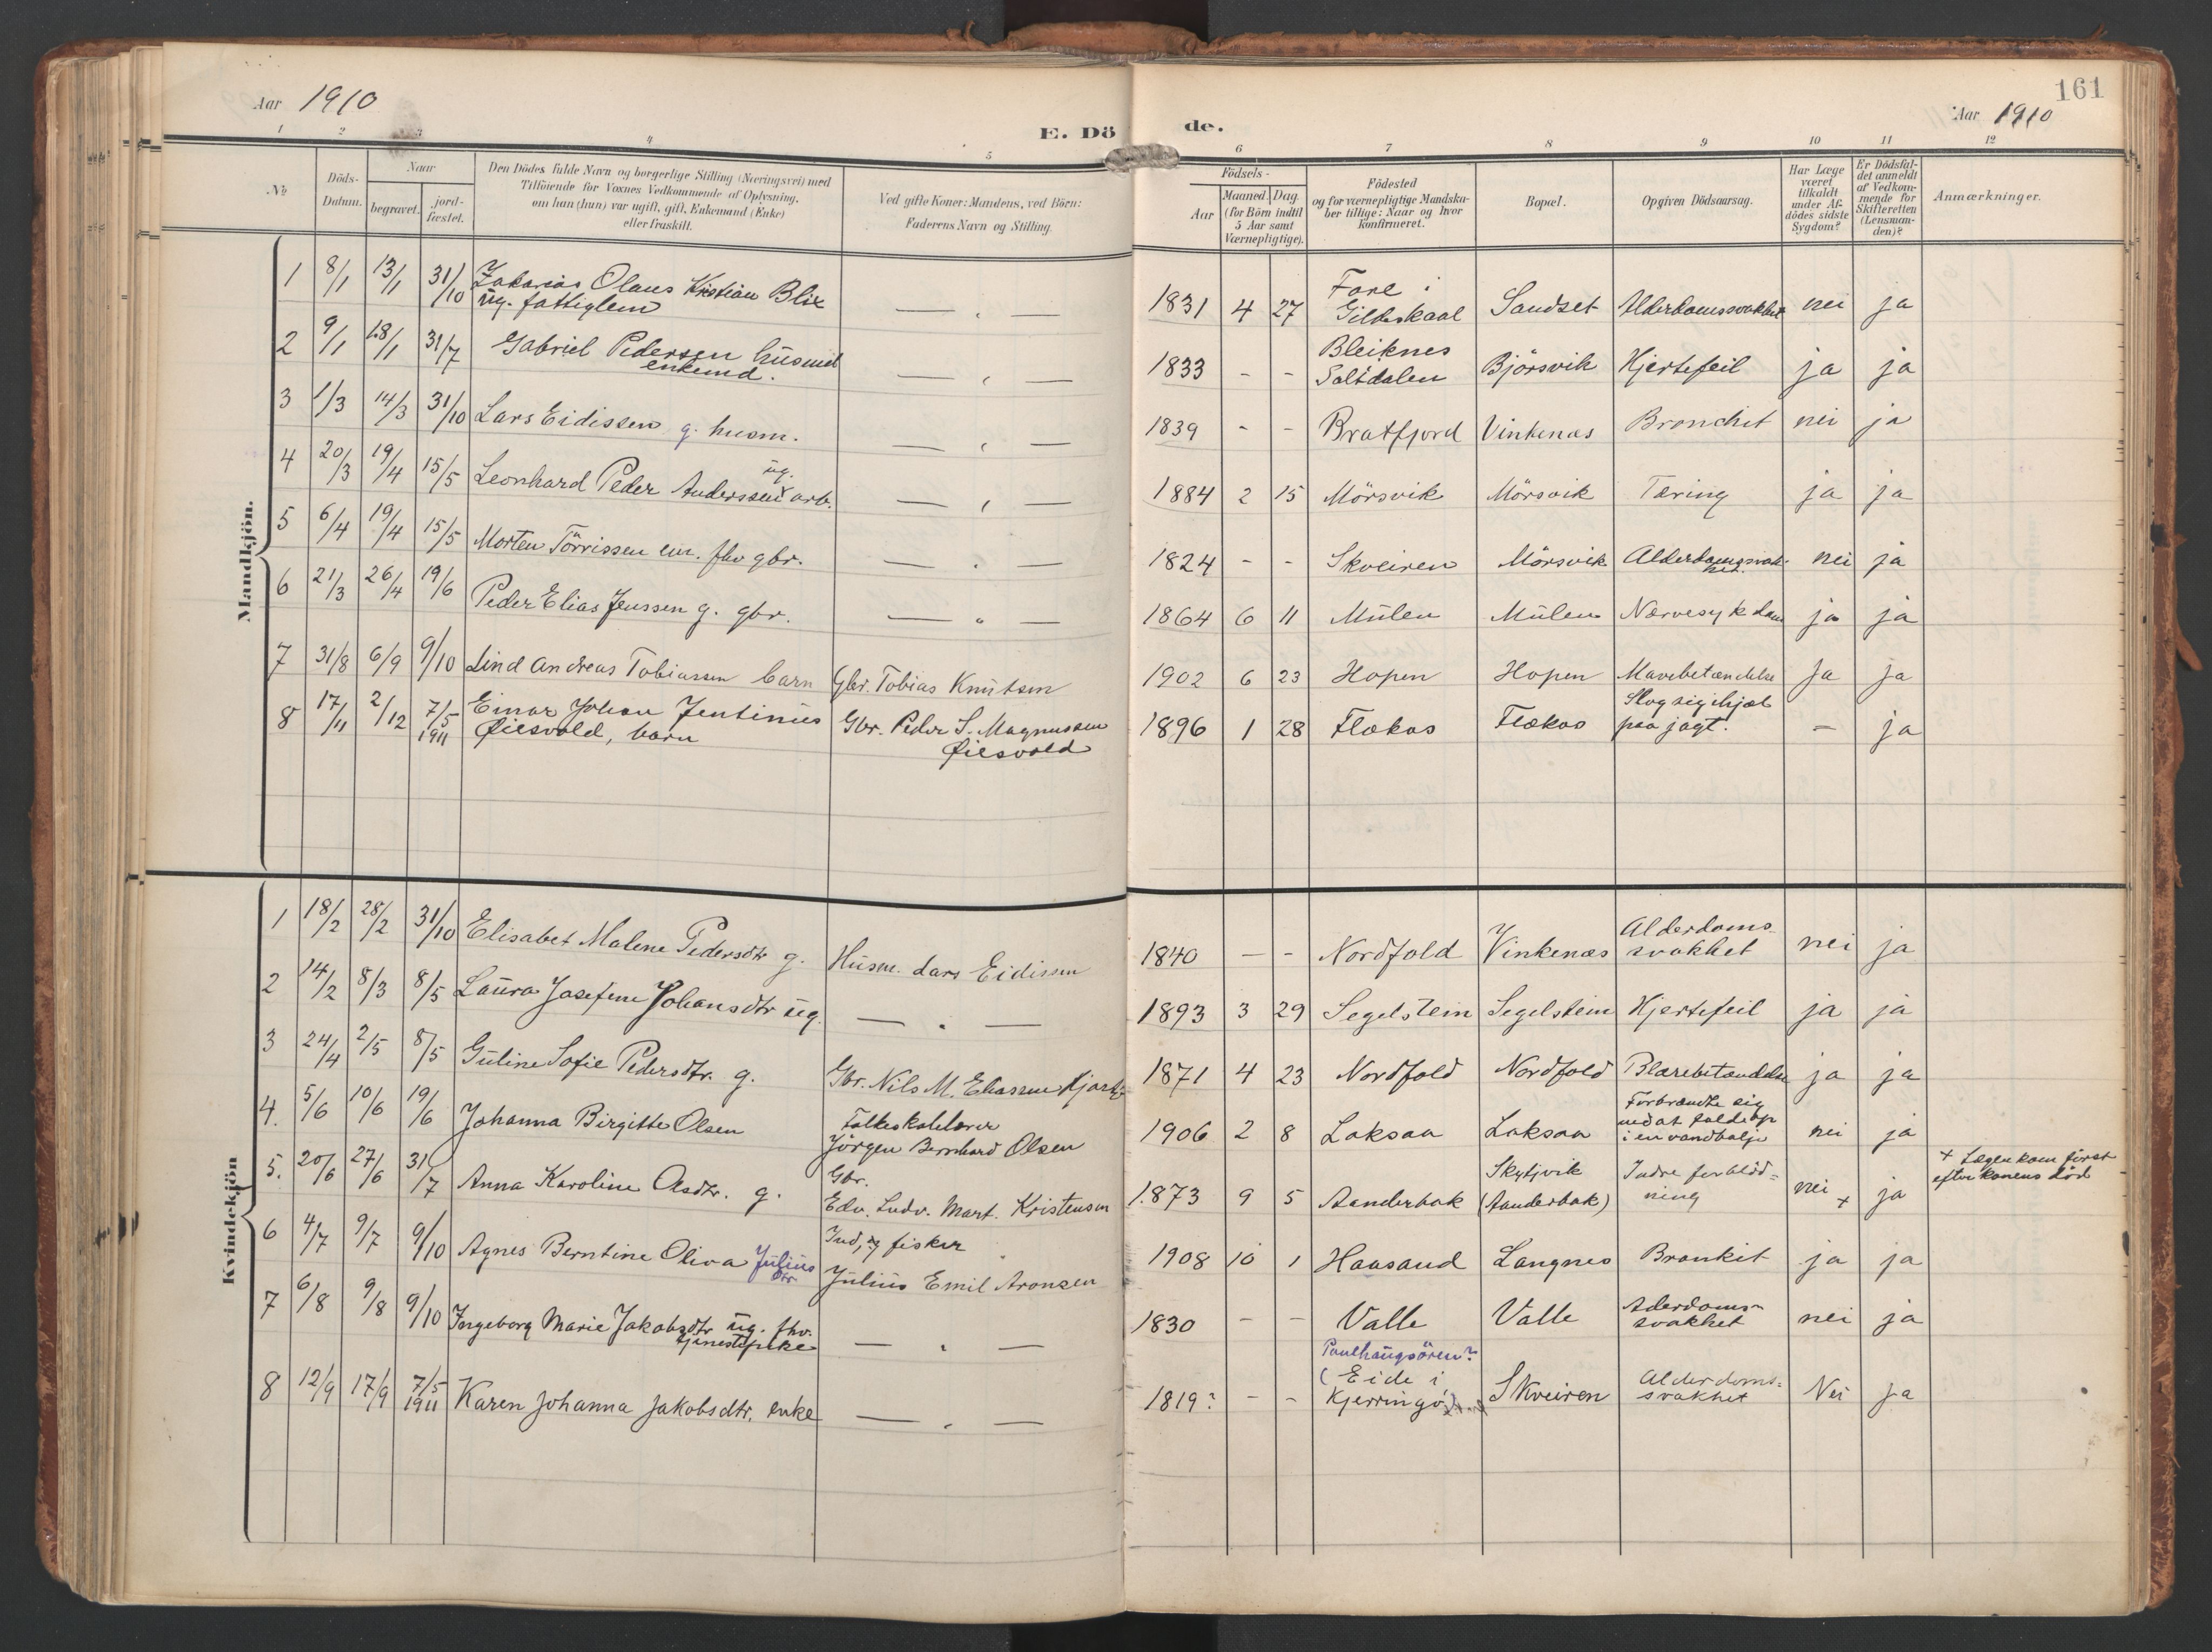 161
Aar 1910
E. Dö
de.
Aar 1910
1 2 3 4 5 6 7 8 9 10 11 12
No
Döds-
Datum.
Naar
begravet.
jord-
fæstet.
Den Dödes fulde Navn og borgerlige Stilling (Næringsvei) med
Tilföiende for Voxnes Vedkommende af Oplysning,
om han (hun) var ugift, gift, Enkemand (Enke)
eller fraskilt.
Ved gifte Koner: Mandens, ved Börn:
Faderens Navn og Stilling.
Födsels-
Aar
Maaned. Dag
(for Börn indtil
5 Aar samt
Værnepligtige).
Födested
og for værnepligtige Mandska-
ber tillige: Naar og hvor
konfirmeret.
Bopæl.
Opgiven Dödsaarsag.
Har Læge
været
tilkaldt
under Af-
dödes sidste
Sygdom?
Er Dödsfal-
det anmeldt
af Vedkom-
mende for
Skifteretten
(Lensman-
den)?
Anmærkninger.
Mandkjön.
1 8/1 13/1 31/10 Zakarias Olaus Kristian Blix
ug. fattiglem — " — 1831 4 27 Fore i
Gildeskaal Sandset Alderdomssvakhet nei ja
2 9/1 18/1 31/7 Gabriel Pedersen husmd
enkemd. — " — 1833 - - Bleiknes
Saltdalen Björsvik Hjertefeil ja ja
3 1/3 14/3 31/10 Lars Eidissen g. husm. — " — 1839 - - Bratfjord Vinkenæs Bronchit nei ja
4 20/3 19/4 15/5 Leonhard Peder Anderssen ug. arb. — " — 1884 2 15 Mörsvik Mörsvik Tæring ja ja
5 6/4 19/4 15/5 Morten Törrissen em. fhv gbr. — " — 1824 - - Skveiren Mörsvik Alderdomssvak-
het. nei ja
6 21/3 26/4 19/6 Peder Elias Jenssen g. gbr. — " — 1864 6 11 Mulen Mulen Nervesykdom ja ja
7 31/8 6/9 9/10 Lind Andreas Tobiassen barn Gbr. Tobias Knutsen 1902 6 23 Hopen Hopen Mavebetændelse Ja ja
8 17/11 2/12 7/5 1911 Einar Johan Jentinius
Øiesvold, barn Gbr. Peder S. Magnussen
Øiesvold 1896 1 28 Flækas Flækas Slog sig ihjæl
paa jagt. — ja
Kvindekjön
1 18/2 28/2 31/10 Elisabet Malene Pedersdtr g. Husm. Lars Eidissen 1840 — - Nordfold Vinkenæs Alderdoms-
svakhet nei ja
2 14/2 8/3 8/5 Laura Josefine Johansdtr ug. — " — 1893 3 29 Segelstein Segelstein Hjertefeil ja ja
3 24/4 2/5 8/5 Guline Sofie Pedersdtr. g. Gbr. Nils M. Eliassen 1871 4 23 Nordfold Nordfold Blærebetændelse ja ja
4. 5/6 10/6 19/6 Johanna Birgitte Olsen Folkeskolelærer
Jörgen Bernhard Olsen 1906 2 8 Laksaa Laksaa Forbrændte sig
ved at falde op
i en vandbalje nei ja
5. 20/6 27/6 31/7 Anna Karoline Olsdtr. g. Gbr.
Edv. Ludv. Mart. Kristensen 1873 9 5 Aanderbak Skytjvik
(Aanderbak) Indre forblöd=
ning nei + ja + Lægen kom först
efter konens död
6 4/7 9/7 9/10 Agnes Berntine Oliva Julius
dtr Ind. og fisker
Julius Emil Aronsen 1908 10 1 Haasand Langnes Bronkit ja ja
7 6/8 9/8 9/10 Ingeborg Marie Jakobsdtr ug. fhv.
tjenestepike — " — 1830 - - Valle Valle Aderdoms-
svakhet nei ja
8 12/9 17/9 7/5 1911 Karen Johanna Jakobsdtr, enke — " — 1819? - - Paulhaugsören?
(Eide i
Kjerringö) Skveiren Alderdoms=
svakhet Nei ja